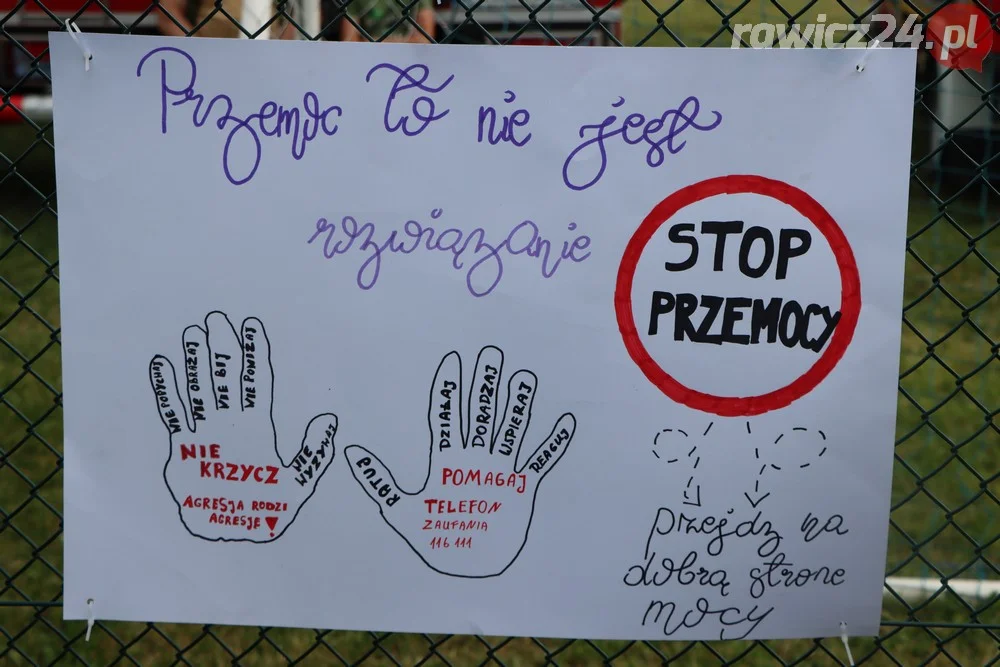 rawicz24.pl
Przemoc To nie jest
rozwiązanie
STOP
PRZEMOCY
NIE OBRAŻAJ
NIE BIJ
NIE PONIŻAJ
NIE
KRZYCZ
AGRESJA RODZI
AGRESJE!
RATUJ
DZIAŁAJ
DORADZAJ
WSPIERAJ
REAGUJ
POMAGAJ
TELEFON
ZAUFANIA
116 111
przejdz na
dobrą strone
mocy